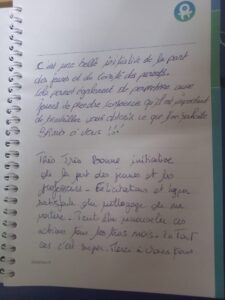 C'est une belle initiative de la part
des jeunes et du comité des parents.
Cela permet également de permettre aux
jeunes de prendre conscience qu'il est important
de travailler avant d'obtenir ce que l'on souhaite
à vous !!!
Très Très bonne initiative
de la part des jeunes et des
professeurs. Félicitations et
satisfaite du nettoyage de ma
voiture. Faut renouveler ces
actions tous les mois. En tout
cas c'est super. Merci à vous tous